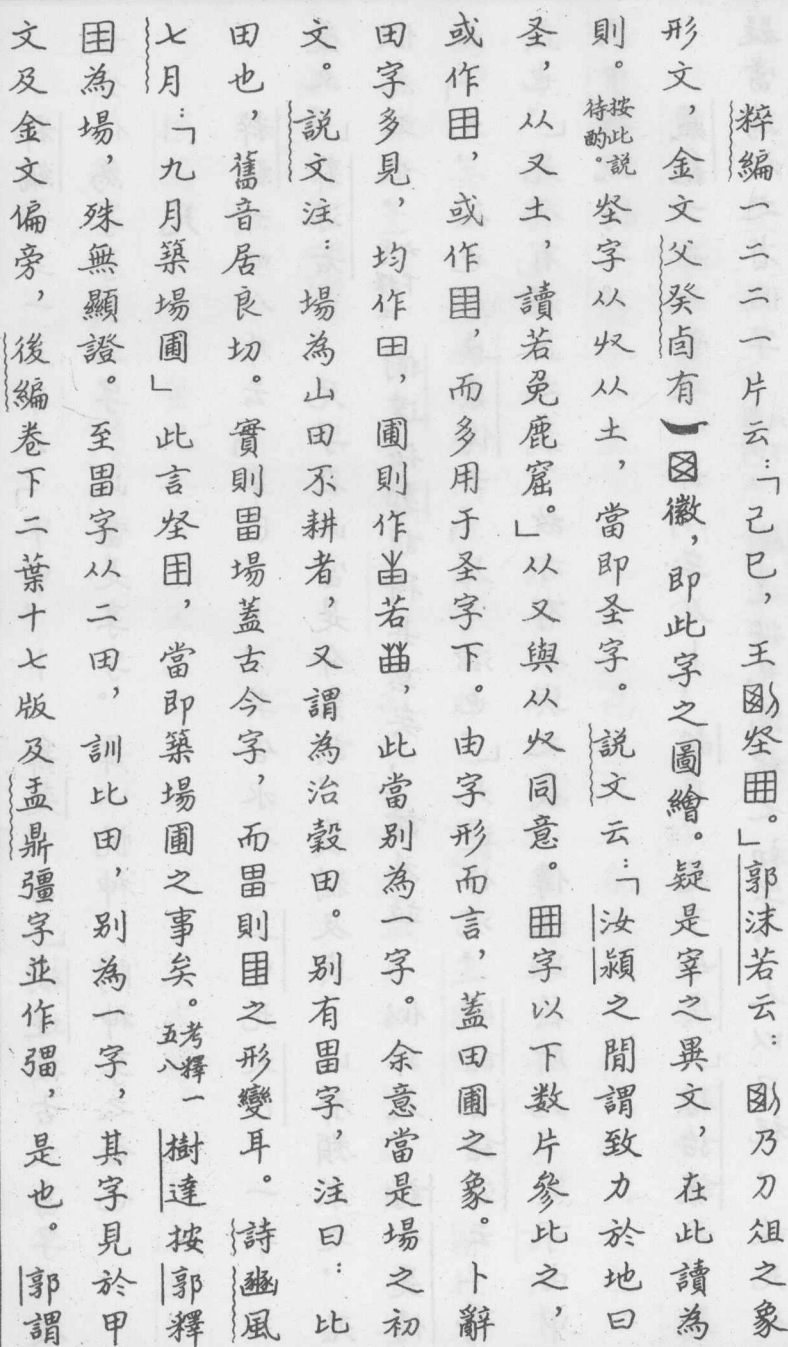 粹編一二二一片云：「己巳，王𠚣𡉄田。」郭沫若云：𠚣乃刀俎之象
形文，金文父癸卣有徽，即此字之圖繪。疑是宰之異文，在此讀為
則。按此説待酌。𡉄字从𠬞从土，當即圣字。説文云：「汝潁之閒謂致力於地曰
圣，从又土，讀若兔鹿窟。」从又與从𠬞同意。字以下数片參此之，
或作，或作，而多用于圣字下。由字形而言，蓋田圃之象。卜辭
田字多見，均作田，圃則作若，此當别為一字。余意當是場之初
文。説文注：場為山田不耕者，又謂為治穀田。别有畕字，注曰：比
田也，舊音居良切。實則畕場蓋古今字，而畕則之形變耳。詩豳風
七月：「九月築場圃」此言𡉄，當即築場圃之事矣。考釋一五八樹達按郭釋
為場，殊無顯證。至畕字从二田，訓比田，别為一字，其字見於甲
文及金文偏旁，後編卷下二葉十七版及盂鼎彊字並作弫，是也。郭謂